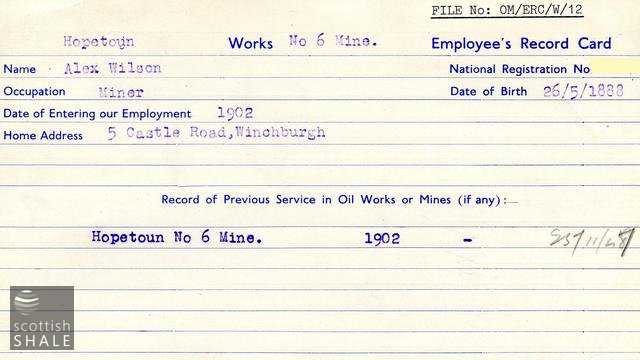 FILE No: OM/ERC/W/12
Hopetoun Works No 6 Mine. Employee's Record Card
Name Alex Wilson National Registration No
Occupation Miner Date of Birth 26/5/1888
Date of Entering our Employment 1902
Home Address 5 Castle Road, Winchburgh
Record of Previous Service in Oil Works or Mines (if any):—
Hopetoun No 6 Mine. 1902 -
scottish
SHALE